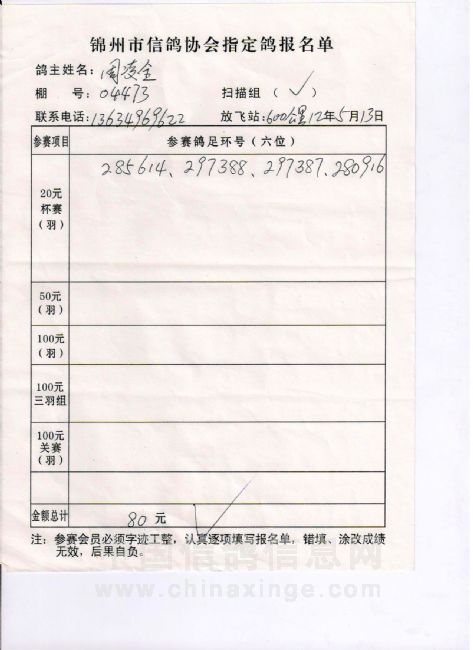 锦州市信鸽协会指定鸽报名单
鸽主姓名：周凌全
棚 号：04473 扫描组 （√）
联系电话：13634969622 放飞站：600公里 12年5月13日
参赛项目 参赛鸽足环号（六位）
285614、297388、297387、280916
20元
杯赛
（羽）
50元
（羽）
100元
（羽）
100元
三羽组
100元
关赛
（羽）
金额总计 80 元
注：参赛会员必须字迹工整，认真逐项填写报名单，错填、涂改成绩
无效，后果自负。
中国信鸽信息网
www.chinaxinge.com